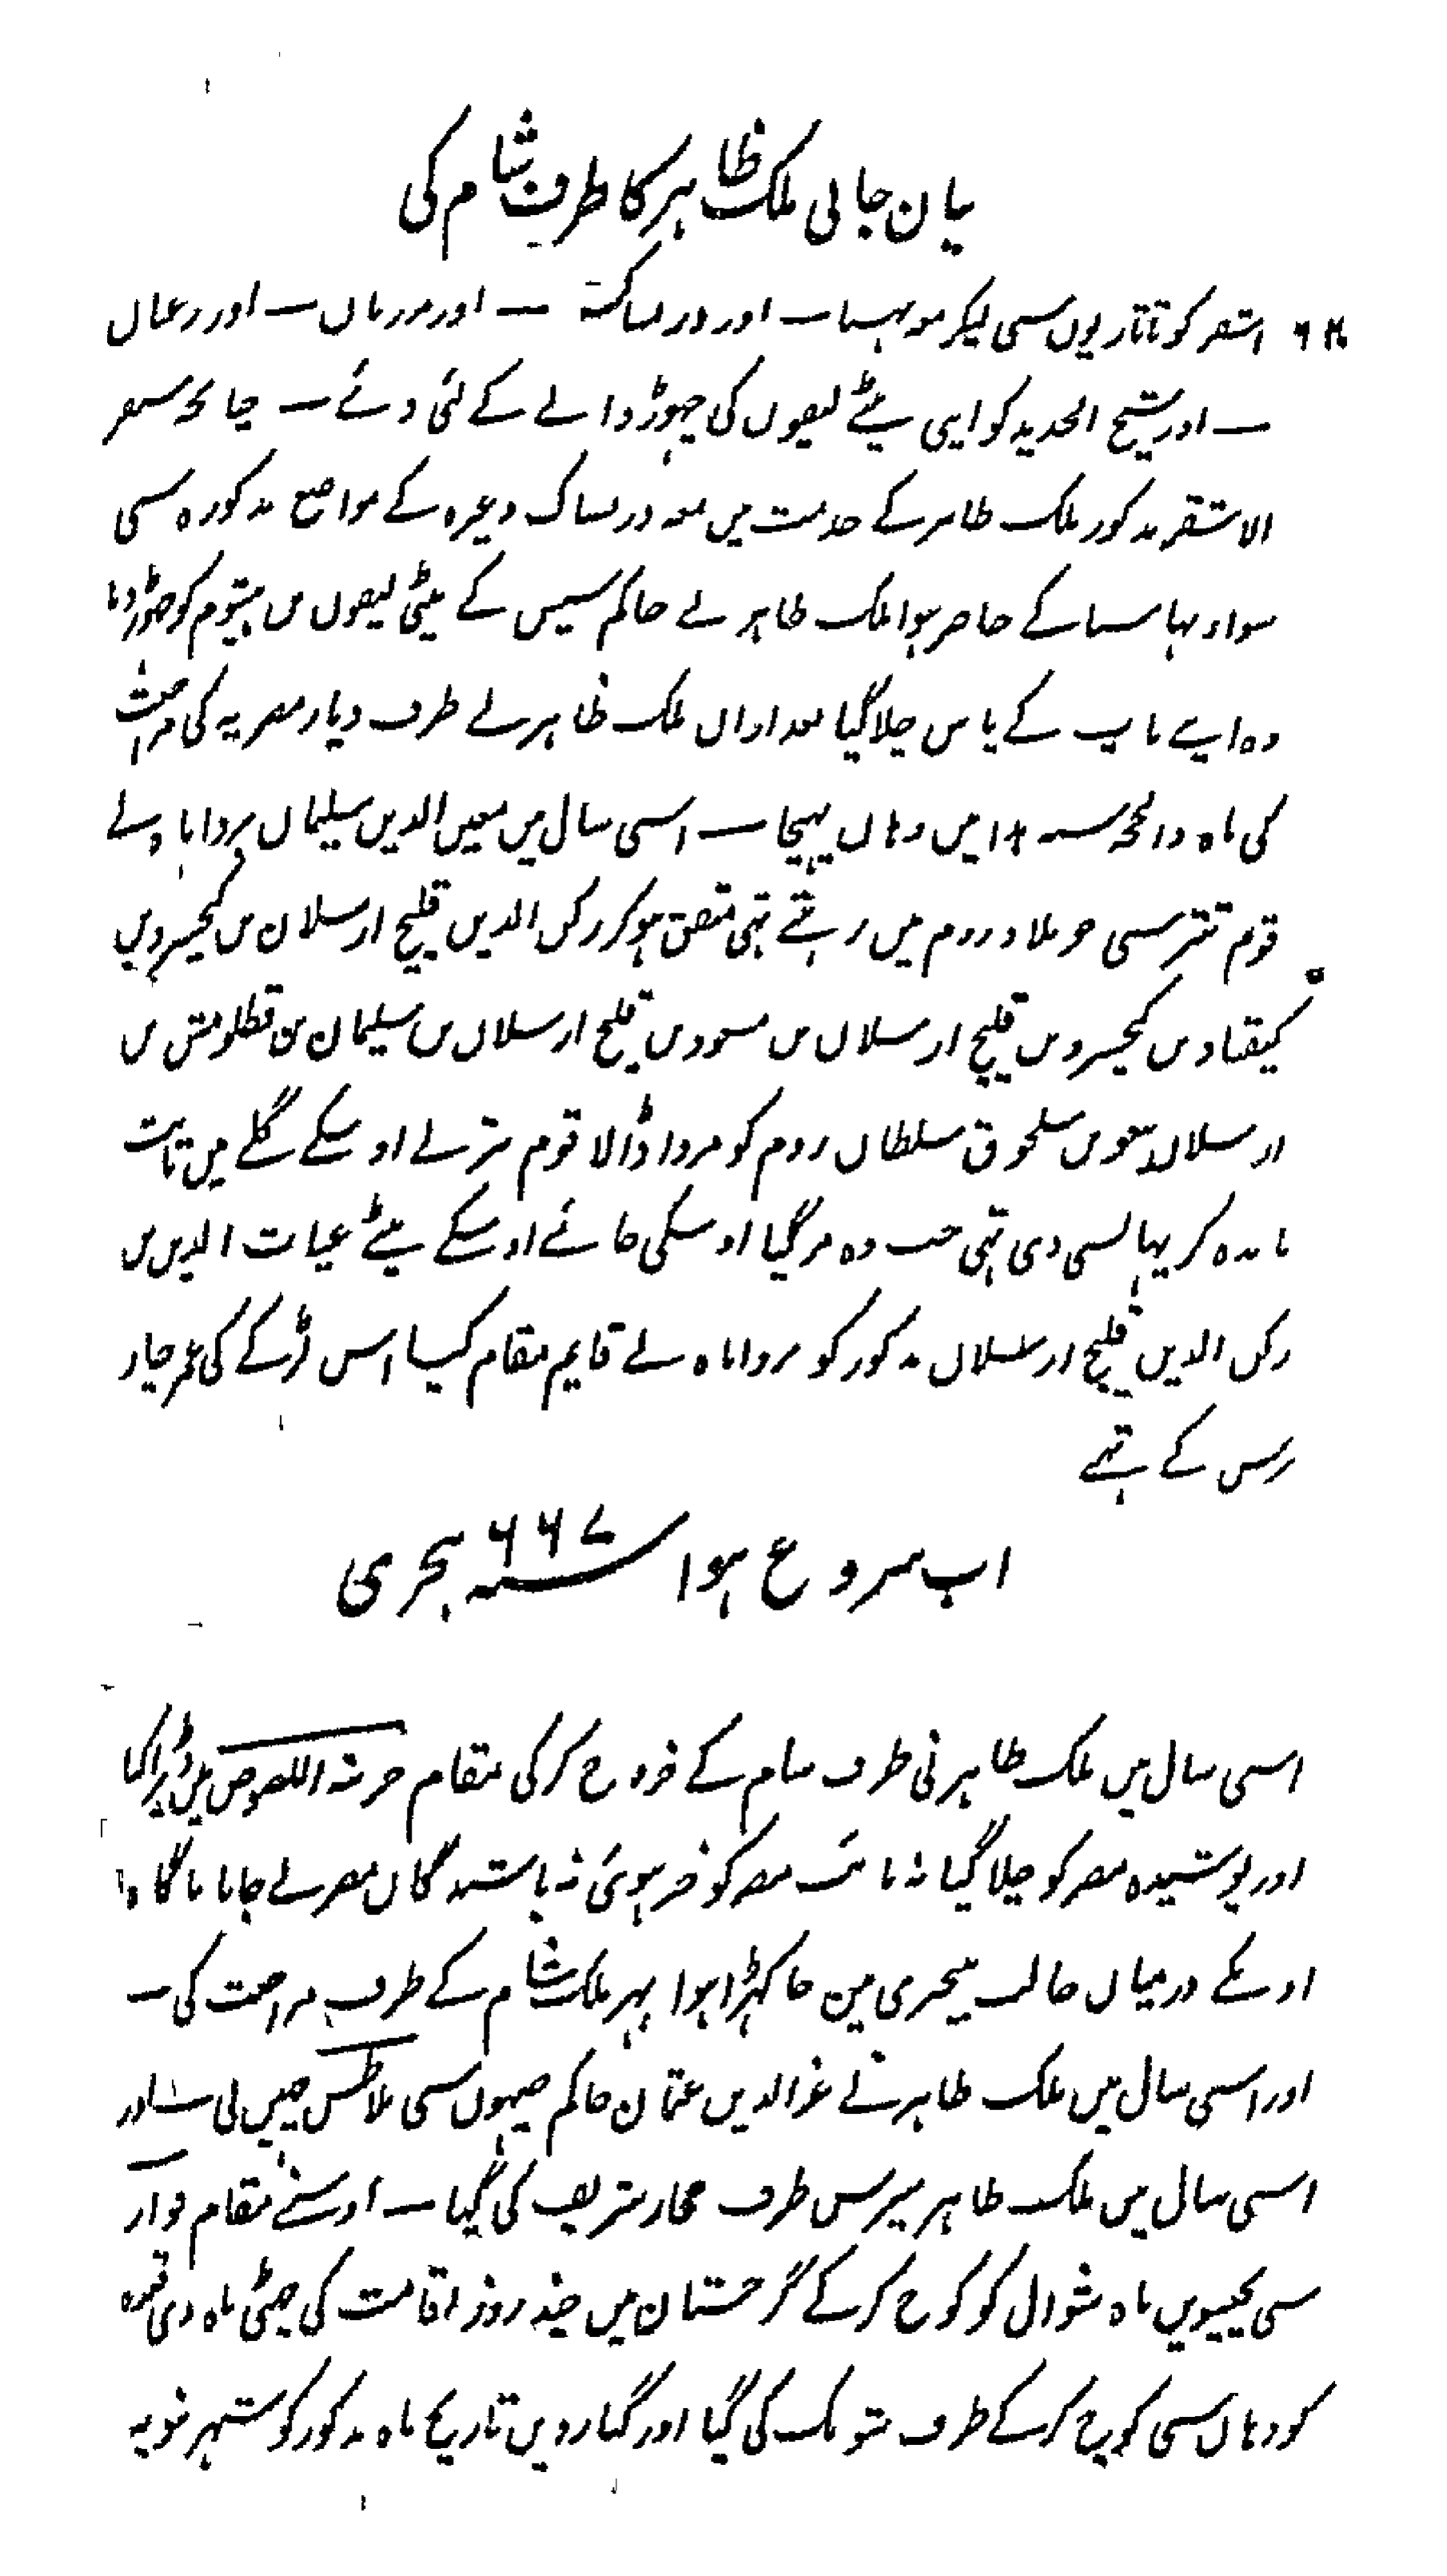 بیان جانی ملک ظاہر کا طرف شام کی
اشقر کو تاتاریوں سی لیکر موبہسا ۔ اور دربساک ۔ اور مرزبان ۔ اور رعبان
۔ اور شیح الحدید کو اپنی بیٹے لیفون کی چہوڑوانے کے لئی دئے ۔ چنانچہ سنقر
الاشقر مذکور ملک ظاہر کے خدمت میں معہ دربساک وغیرہ کے مواضع مذکورہ سی
سواء بہسنا کے حاضر ہوا ملک ظاہر نے حاکم سیس کے بیٹی لیفون بن ہیتوم کو چہوڑ دیا
وہ اپنے باپ کے پاس چلا گیا بعد ازاں ملک ظاہر نے طرف دیار مصریہ کی مراجعت
کی ماہ ذالحجہ سنہ میں وہاں پہنچا ۔ اسی سال میں معین الدین سلیمان بروانا نے
قوم تتر سی جو بلاد روم میں رہتے تہی متفق ہو کر رکن الدین قلیج ارسلان بن کیخسرو بن
کیقباد بن کیخسرو بن قلیج ارسلان بن مسعود بن قلیج ارسلان بن سلیمان بن قطلومش بن
ارسلان بیعو بن سلجوق سلطان روم کو مروا ڈالا قوم تتر نے اوسکے گلے میں تانت
باندہ کر پہانسی دی تہی جب وہ مر گیا اوسکی جائے اوسکے بیٹے غیاث الدین بن
رکن الدین قلیج ارسلان مذکور کو برواناہ نے قایم مقام کیا اس لڑکے کی عمر چار
برس کے تہے
اب شروع ہوا سنہ ۶۶۷ ہجری
اسی سال میں ملک ظاہر نی طرف شام کے خروج کر کی مقام خربتہ اللصوص میں ڈیرا کیا
اور پوشیدہ مصر کو چلا گیا نہ نائب مصر کو خبر ہوئی نہ باشندگان مصر نے جانا ناگاہ
اونکے درمیان حالت بیخبری مین جا کہڑا ہوا پہر ملک شام کے طرف مراجعت کی ۔
اور اسی سال میں ملک ظاہر نے عزالدین عثمان حاکم صہیون سی بلاطنس چہین لی ۔ اور
اسی سال میں ملک ظاہر بیبرس طرف حجاز شریف کی گیا ۔ اوسنے مقام فوار
سی پچیسویں ماہ شوال کو کوچ کر کے کرخستان میں چند روز اقامت کی چہٹی ماہ ذی قعدہ
کو وہاں سی کوچ کر کے طرف شوبک کی گیا اور گیارویں تاریخ ماہ مذکور کو شہر نبویہ